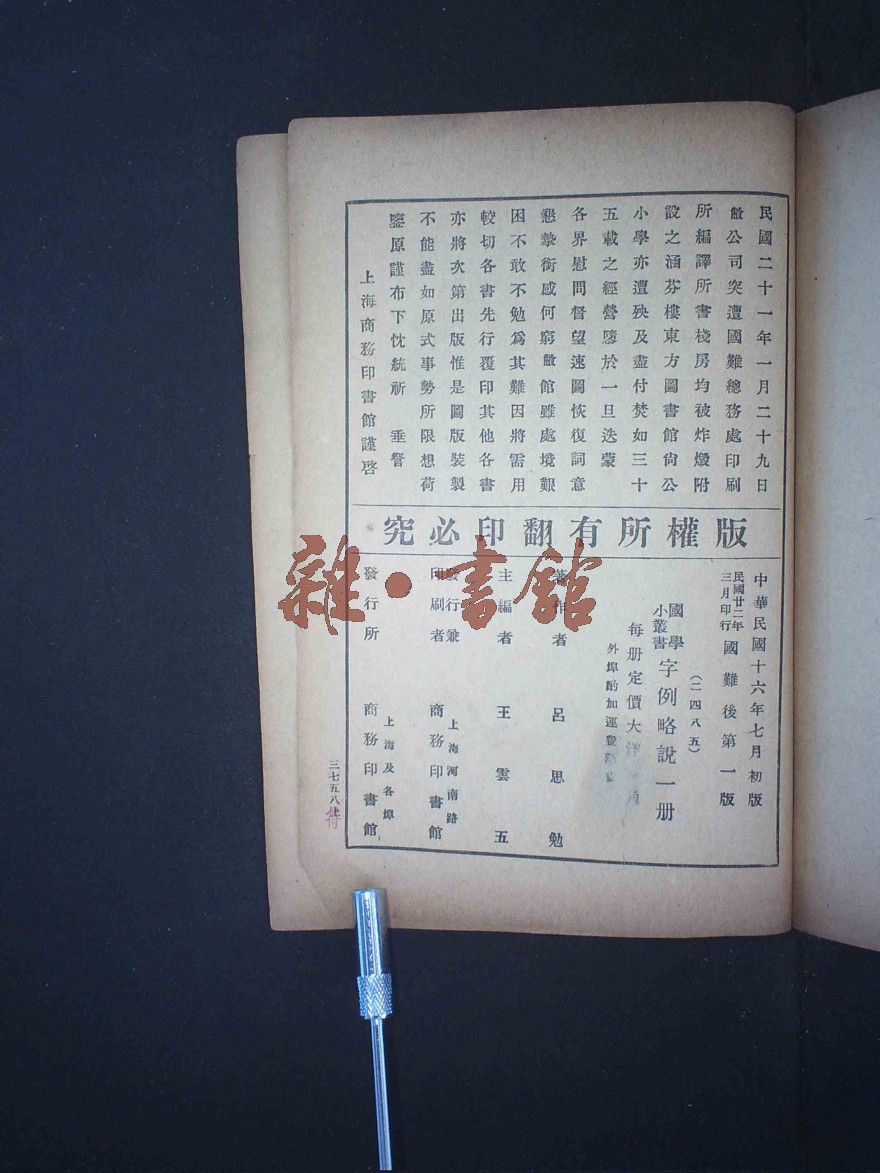 民國二十一年一月二十九日
敝公司突遭國難總務處印刷
所編譯所書棧房均被炸燬附
設之涵芬樓東方圖書館尚公
小學亦遭殃及盡付焚如三十
五載之經營隳於一旦迭蒙
各界慰問督望速圖恢復詞意
懇摯銜感何窮敝館雖處境艱
困不敢不勉爲其難因將需用
較切各書先行覆印其他各書
亦將次第出版惟是圖版裝製
不能盡如原式事勢所限想荷
鑒原謹布下忱統祈 垂詧
上海商務印書館謹啓
版權所有翻印必究
中華民國十六年七月初版
民國廿二年三月印行 國難後第一版
(二四八五)
國學小叢書 字例略說一册
每册定價大洋
外埠酌加運費
著作者 呂思勉
主編者 王雲五
發行兼印刷者 上海河南路 商務印書館
發行所 上海及各埠 商務印書館
三七五八
雜·書館